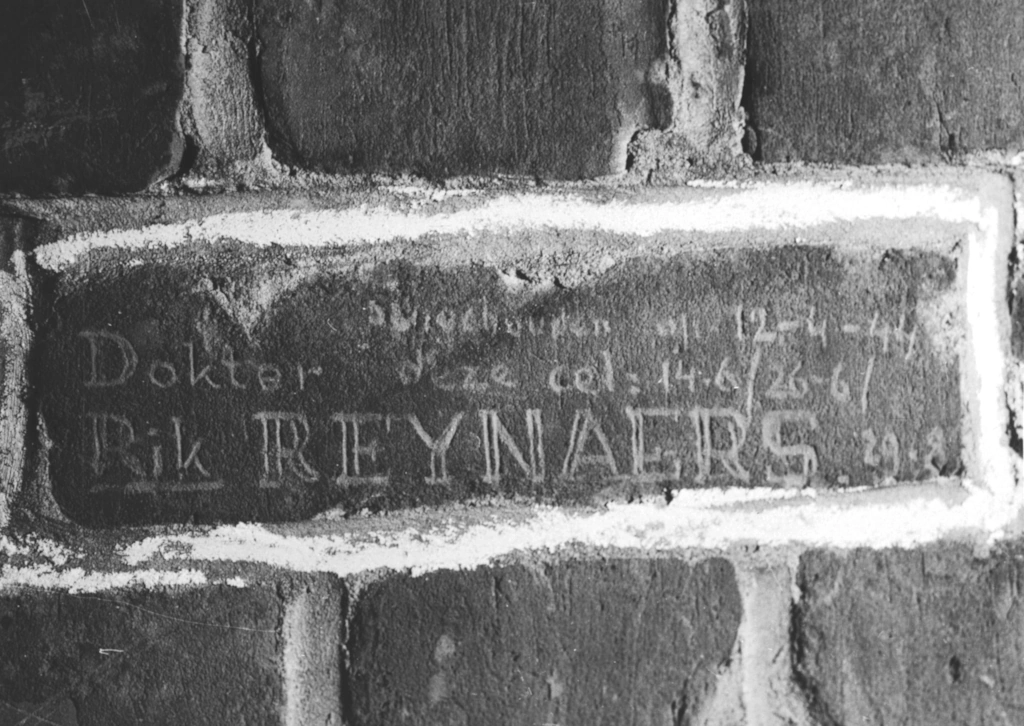 op 12-4-44
Dokter deze cel: 14-6/26-6/
Rik REYNAERS 29-